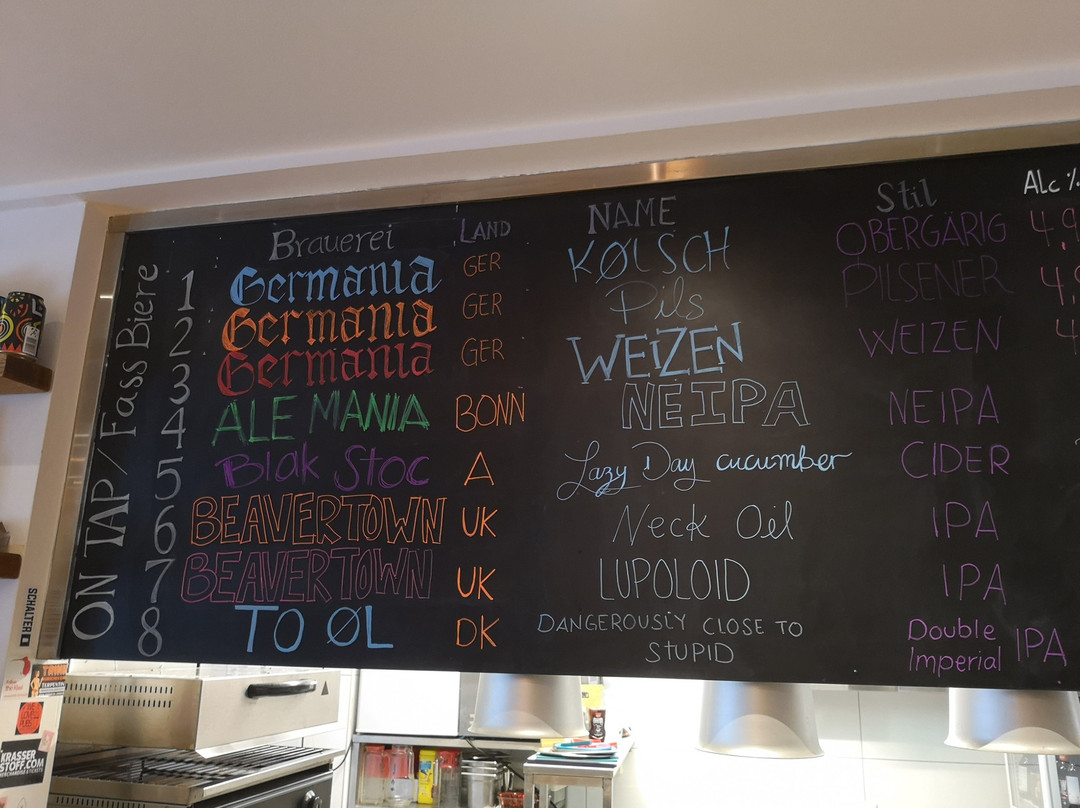 Brauerei LAND NAME Stil ALC %
ON TAP / Fass Biere
1 Germania GER KØLSCH OBERGÄRIG 4,9
2 Germania GER Pils PILSENER 4,
3 Germania GER WEIZEN WEIZEN 4
4 ALE MANIA BONN NEIPA NEIPA
5 Blak Stoc A Lazy Day cucumber CIDER
6 BEAVERTOWN UK Neck Oil IPA
7 BEAVERTOWN UK LUPOLOID IPA
8 TO ØL DK DANGEROUSLY CLOSE TO STUPID Double Imperial IPA
SCHALTER
KRASSER
STOFF.COM